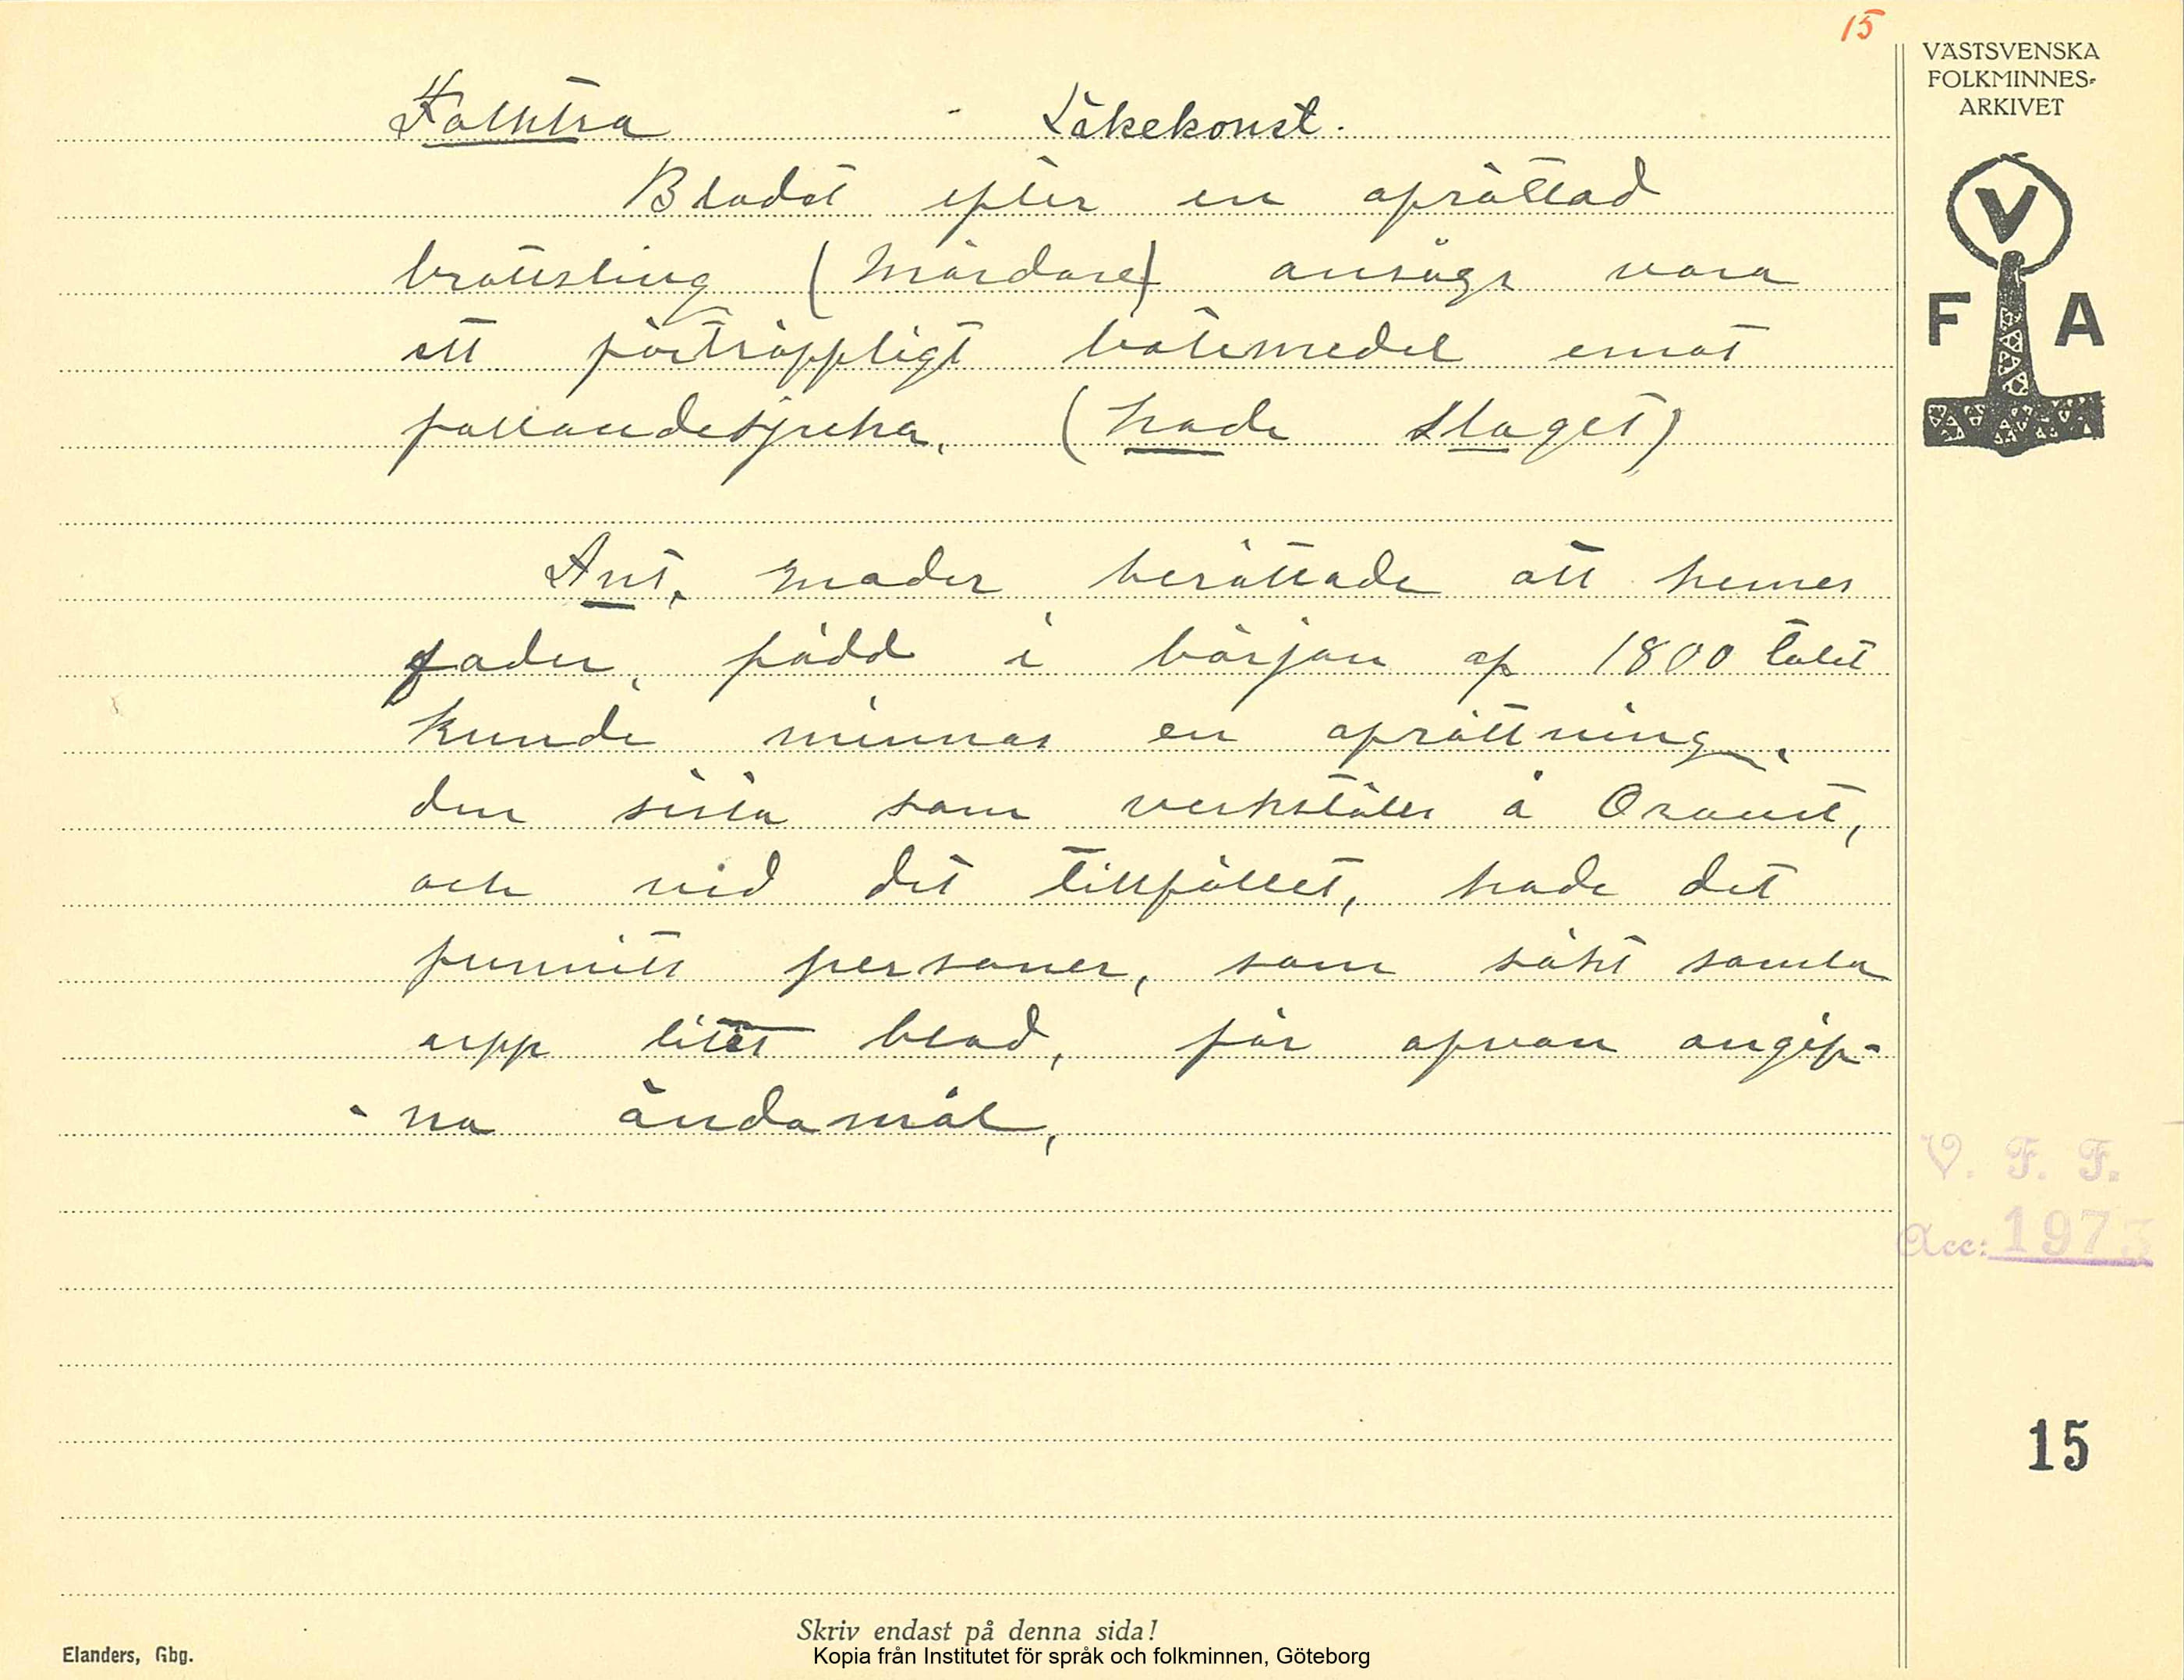 15
VÄSTSVENSKA
FOLKMINNES-
ARKIVET
Folktra - Läkekonst.
Blodet efter en afrättad
brottsling (Mördare) ansågs vara
ett förträffligt botemedel emot
fallandesjuka. (hade slaget)
V
F A
Ant. moder berättade att hennes
fader, född i början af 1800 talet
kunde minnas en afrättning,
den sista som verkstälts å Oroust,
och vid det tillfället, hade det
funnits personer, som sökt samla
upp litet blod, för ofvan angif-
- na ändamål,
V. F. F.
Acc: 1973
15
Skriv endast på denna sida!
Elanders, Gbg.
Kopia från Institutet för språk och folkminnen, Göteborg